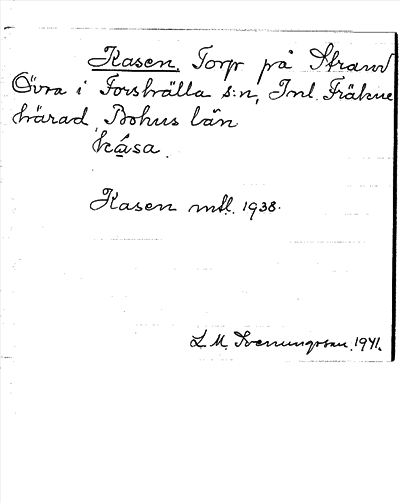 Kasen, Torp på Strand
Övra i Forshälla s:n, Inl. Fräkne
härad, Bohus län
kása.
Kasen mtl. 1938.
L. M. Svenungsson. 1941.